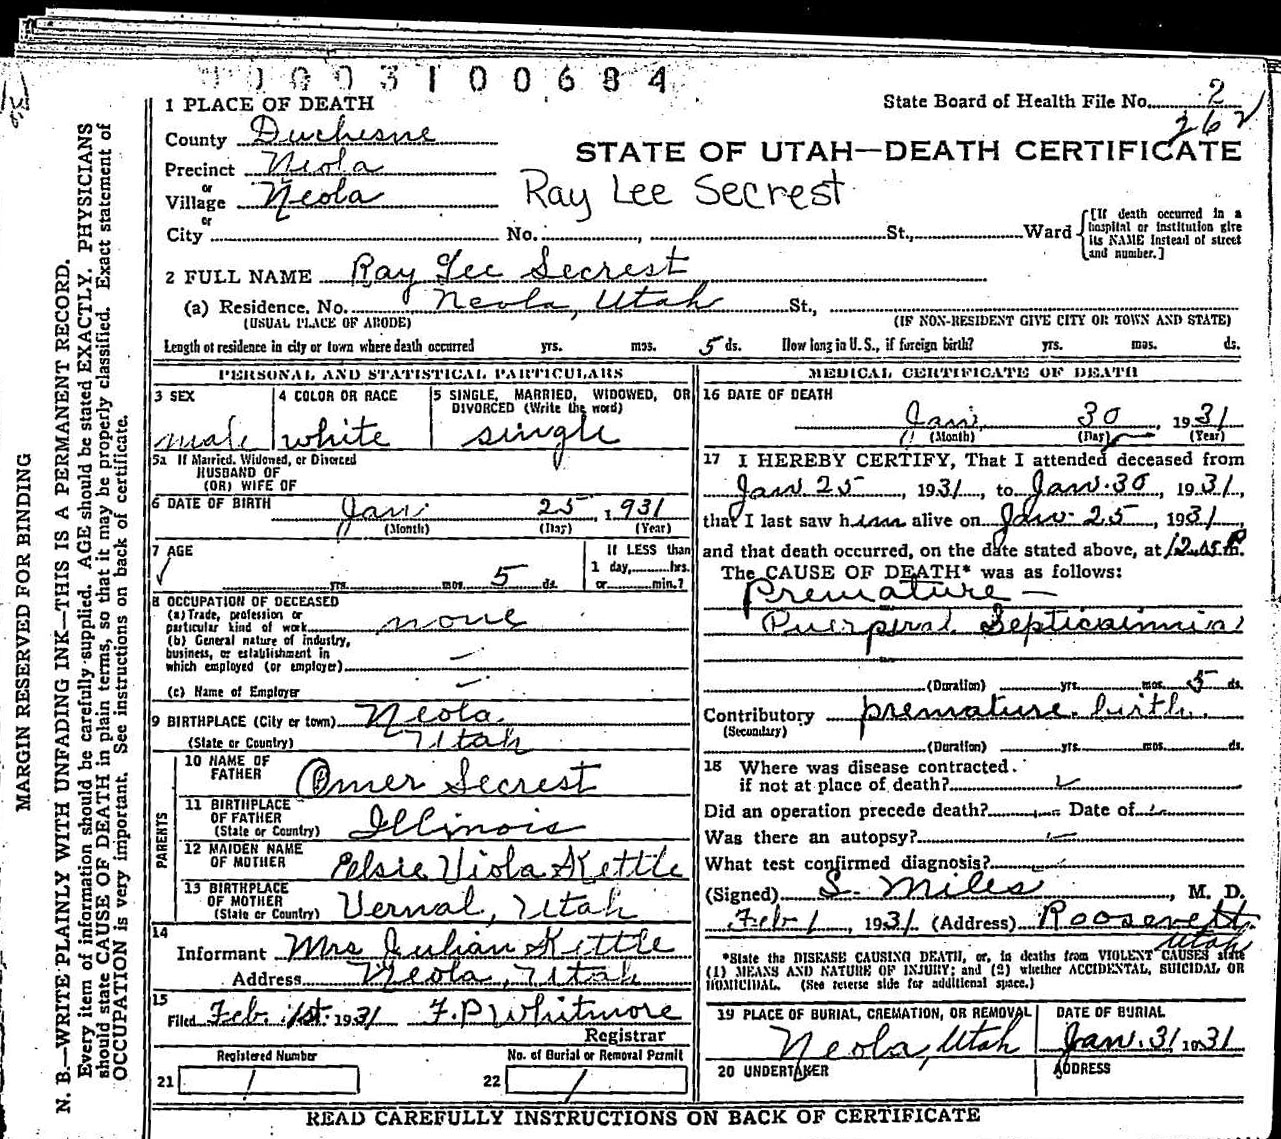 0003100684
State Board of Health File No. 2
262
1 PLACE OF DEATH
County Duchesne
STATE OF UTAH—DEATH CERTIFICATE
Precinct Neola
or
Village Neola
Ray Lee Secrest
or
City No. , St., Ward
[If death occurred in a
hospital or institution give
its NAME instead of street
and number.]
2 FULL NAME Ray Lee Secrest
(a) Residence. No. Neola, Utah St.,
(USUAL PLACE OF ABODE) (IF NON-RESIDENT GIVE CITY OR TOWN AND STATE)
Length of residence in city or town where death occurred yrs. mos. 5 ds. How long in U. S., if foreign birth? yrs. mos. ds.
PERSONAL AND STATISTICAL PARTICULARS
3 SEX
male
4 COLOR OR RACE
white
5 SINGLE, MARRIED, WIDOWED, OR
DIVORCED (Write the word)
single
5a If Married, Widowed, or Divorced
HUSBAND OF
(OR) WIFE OF
6 DATE OF BIRTH Jan. 25, 1931
(Month) (Day) (Year)
7 AGE
yrs. mos. 5 ds.
If LESS than
1 day, hrs.
or min.?
8 OCCUPATION OF DECEASED
(a) Trade, profession or
particular kind of work none
(b) General nature of industry,
business, or establishment in
which employed (or employer)
(c) Name of Employer
9 BIRTHPLACE (City or town) Neola
(State or Country) Utah
PARENTS
10 NAME OF
FATHER Omer Secrest
11 BIRTHPLACE
OF FATHER
(State or Country) Illinois
12 MAIDEN NAME
OF MOTHER Elsie Viola Kettle
13 BIRTHPLACE
OF MOTHER
(State or Country) Vernal, Utah
14
Informant Mrs Julian Kettle
Address Neola, Utah
15
Filed Feb. 1st. 1931 F. P Whitmore
Registrar
Registered Number No. of Burial or Removal Permit
21 1 22 1
MEDICAL CERTIFICATE OF DEATH
16 DATE OF DEATH
Jan. 30, 1931
(Month) (Day) (Year)
17 I HEREBY CERTIFY, That I attended deceased from
Jan 25, 1931, to Jan. 30, 1931,
that I last saw him alive on Jan. 25, 1931,
and that death occurred, on the date stated above, at m.
The CAUSE OF DEATH* was as follows:
Premature —
Puerperal Septicaimnia
(Duration) yrs. mos. 5 ds.
Contributory premature birth.
(Secondary)
(Duration) yrs. mos. ds.
18 Where was disease contracted.
if not at place of death?
Did an operation precede death? Date of
Was there an autopsy?
What test confirmed diagnosis?
(Signed) S. Miles, M. D.
Feb 1, 1931. (Address) Roosevelt
Utah
*State the DISEASE CAUSING DEATH, or, in deaths from VIOLENT CAUSES state
(1) MEANS AND NATURE OF INJURY; and (2) whether ACCIDENTAL, SUICIDAL OR
HOMICIDAL. (See reverse side for additional space.)
19 PLACE OF BURIAL, CREMATION, OR REMOVAL
Neola, Utah
DATE OF BURIAL
Jan. 31 1931
20 UNDERTAKER
ADDRESS
READ CAREFULLY INSTRUCTIONS ON BACK OF CERTIFICATE
MARGIN RESERVED FOR BINDING
N. B.—WRITE PLAINLY WITH UNFADING INK—THIS IS A PERMANENT RECORD.
Every item of information should be carefully supplied. AGE should be stated EXACTLY. PHYSICIANS
should state CAUSE OF DEATH in plain terms, so that it may be properly classified. Exact statement of
OCCUPATION is very important. See instructions on back of certificate.